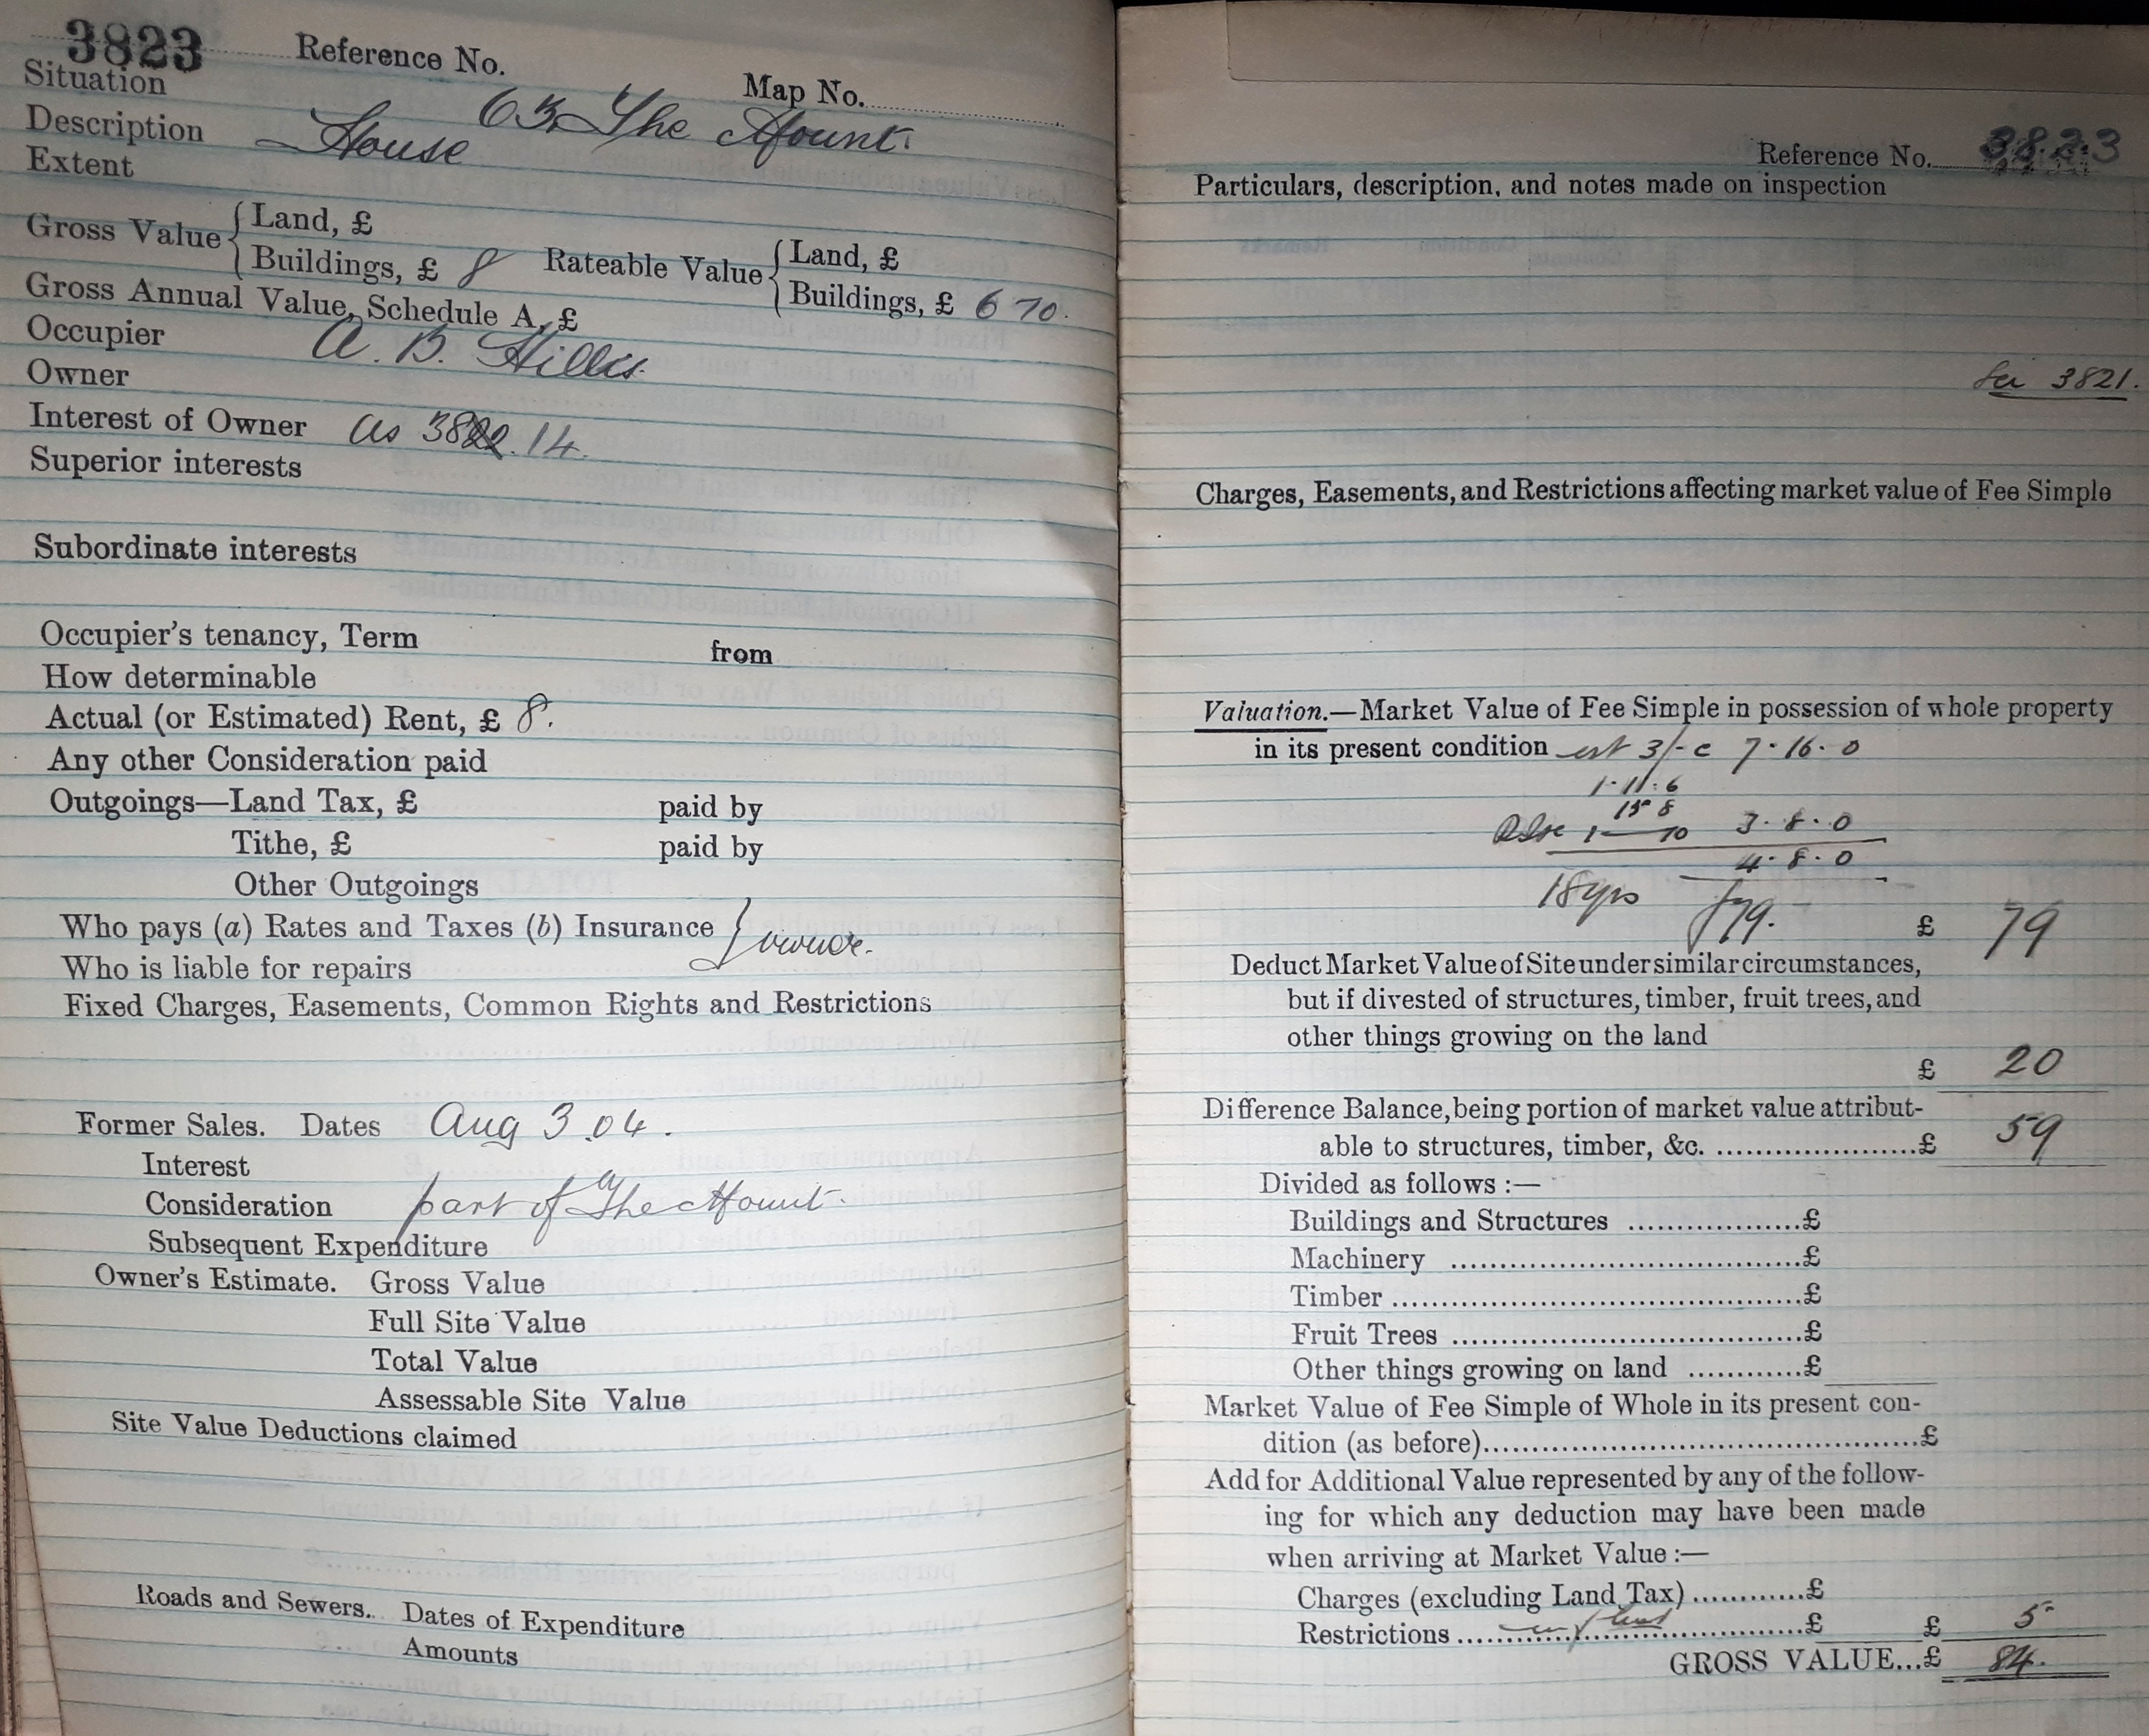 3823 Reference No. Map No.
Situation 63 The Mount.
Description House
Extent
Gross Value { Land, £
Buildings, £ 8 Rateable Value { Land, £
Buildings, £ 6 10.
Gross Annual Value, Schedule A, £
Occupier A. B. Hillis.
Owner
Interest of Owner as 38 14.
Superior interests
Subordinate interests
Occupier's tenancy, Term from
How determinable
Actual (or Estimated) Rent, £ 8.
Any other Consideration paid
Outgoings—Land Tax, £ paid by
Tithe, £ paid by
Other Outgoings
Who pays (a) Rates and Taxes (b) Insurance } owner.
Who is liable for repairs
Fixed Charges, Easements, Common Rights and Restrictions
Former Sales. Dates Aug 3.04.
Interest
Consideration part of The Mount.
Subsequent Expenditure
Owner's Estimate. Gross Value
Full Site Value
Total Value
Assessable Site Value
Site Value Deductions claimed
Roads and Sewers. Dates of Expenditure
Amounts
Reference No. 3823
Particulars, description, and notes made on inspection
See 3821.
Charges, Easements, and Restrictions affecting market value of Fee Simple
Valuation.—Market Value of Fee Simple in possession of whole property
in its present condition est 3/- 7.16.0
1.11.6
15 8
1 10 3.8.0
4.8.0
18 yrs £79.
£ 79
Deduct Market Value of Site under similar circumstances,
but if divested of structures, timber, fruit trees, and
other things growing on the land
£ 20
Difference Balance, being portion of market value attribut-
able to structures, timber, &c. £ 59
Divided as follows :—
Buildings and Structures £
Machinery £
Timber £
Fruit Trees £
Other things growing on land £
Market Value of Fee Simple of Whole in its present con-
dition (as before) £
Add for Additional Value represented by any of the follow-
ing for which any deduction may have been made
when arriving at Market Value :—
Charges (excluding Land Tax) £
Restrictions £ £ 5
GROSS VALUE...£ 84.